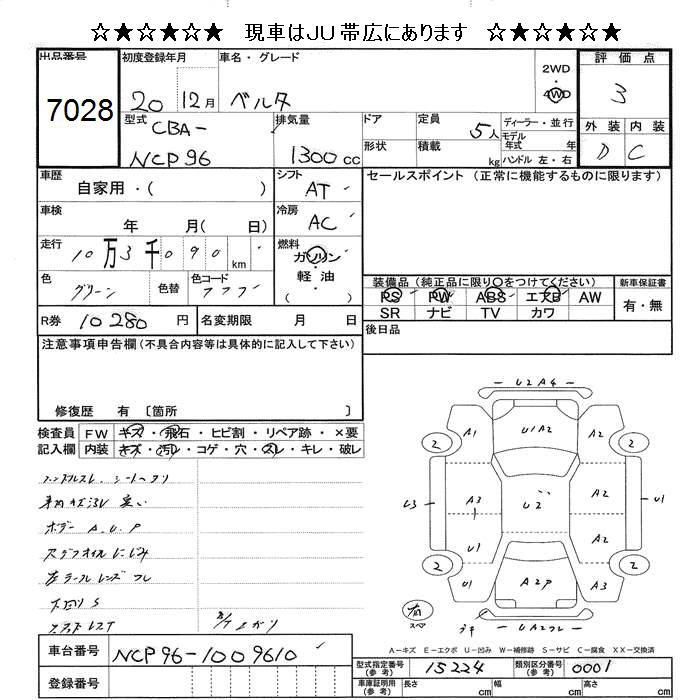 ☆★☆★☆★ 現車はJU帯広にあります ☆★☆★☆★
出品番号 7028
初度登録年月 20 12月
車名・グレード ベルタ
2WD ・ 4WD
評価点 3
外装 D 内装 C
型式 CBA-
NCP96
排気量 1300cc
ドア
形状
定員 5人
積載 kg
ディーラー・並行
モデル年式 年
ハンドル 左・右
車歴 自家用・( )
シフト AT
セールスポイント (正常に機能するものに限ります)
車検 年 月( 日)
冷房 AC
走行 10万3千090km
燃料 ガソリン・軽油・( )
色 グリーン 色替 色コード
装備品 (純正品に限り〇をつけてください)
PS PW ABS エアB AW
SR ナビ TV カワ
新車保証書 有・無
R券 10280円
名変期限 月 日
後日品
注意事項申告欄 (不具合内容等は具体的に記入して下さい)
修復歴 有 〔箇所 〕
検査員 FW キズ・飛石・ヒビ割・リペア跡・×要
記入欄 内装 キズ・汚レ・コゲ・穴・スレ・キレ・破レ
ハンドルスレ シートヘタリ
ボデー A.U.P
左テールレンズ ワレ
下回りS
U2A4
A1 U1A2 A2
2 2
U3 A3 U2 A2 U1
U1 A2
2 2
U1 A2P A3
スペア
A-キズ E-エクボ U-凹み W-補修跡 S-サビ C-腐食 XX-交換済
車台番号 NCP96-1009610
登録番号
型式指定番号(参考) 15224
類別区分番号(参考) 0001
車庫証明用(参考) 長さ cm 幅 cm 高さ cm